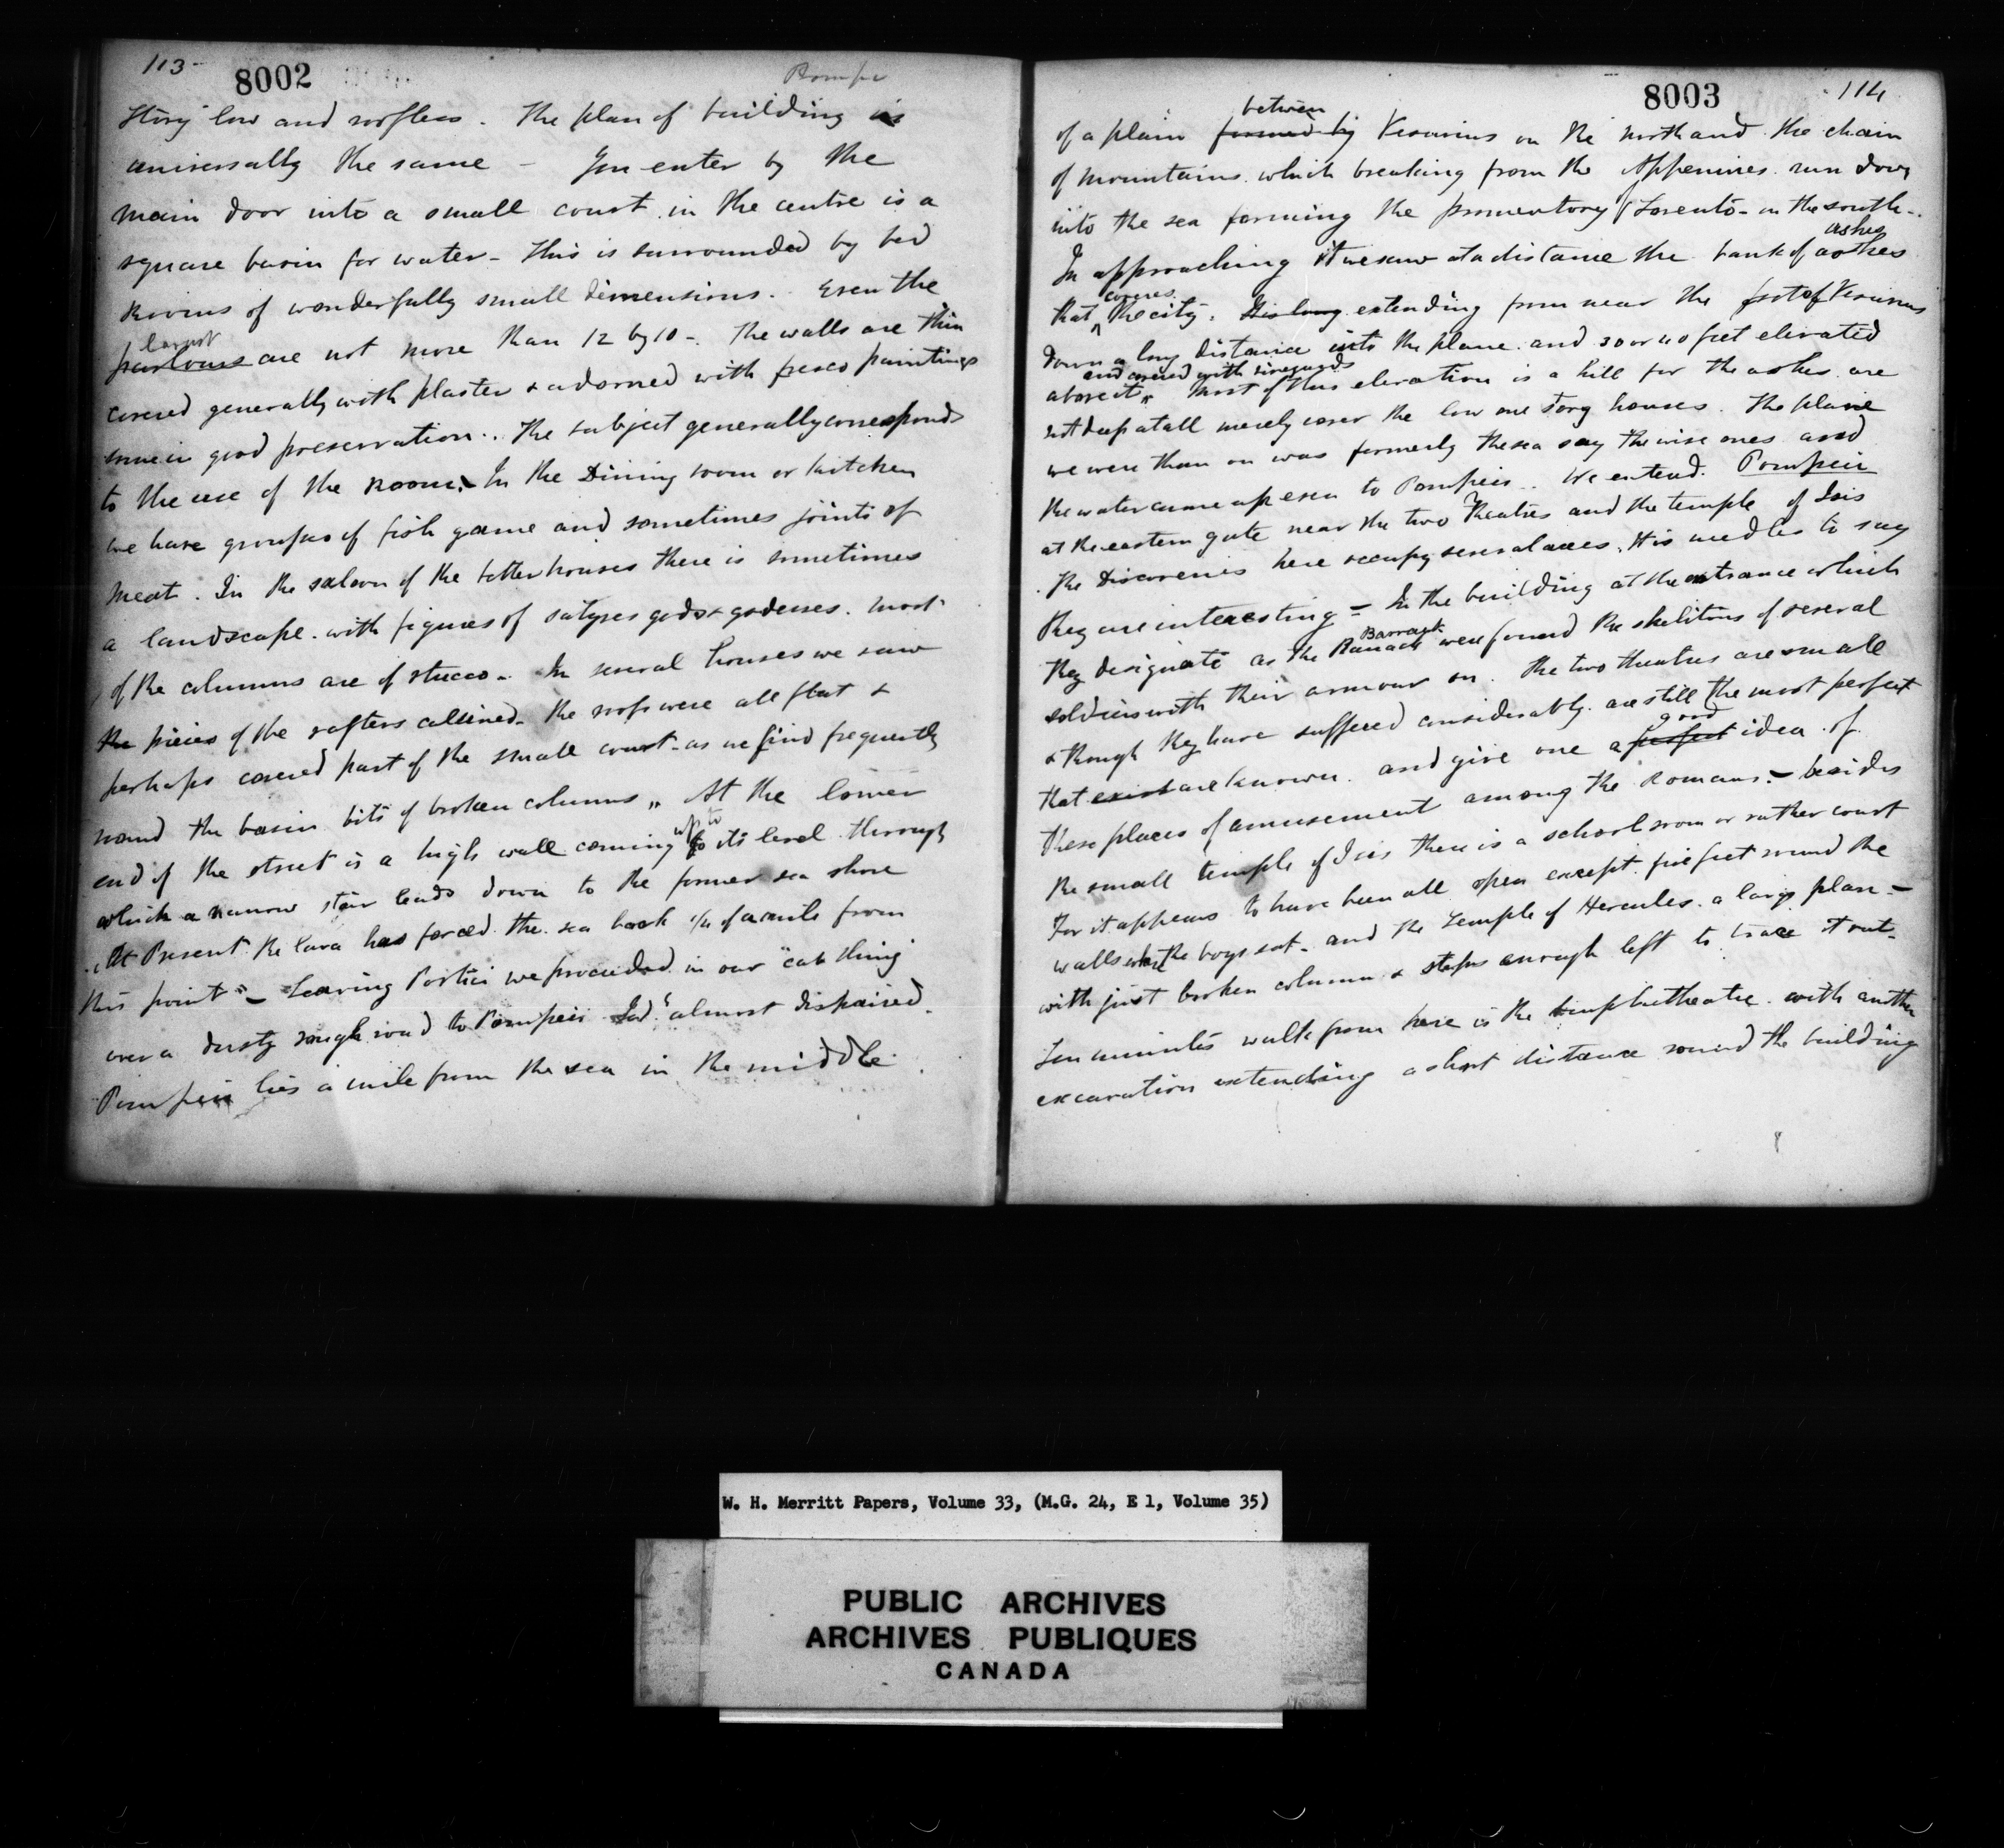 113-
8002
Pompe
Story low and roofless. The plan of building is
universally the same - You enter by the
main door into a small court in the centre is a
square basin for water - This is surrounded by bed
Rooms of wonderfully small dimensions. Even the
largest
parlours are not more than 12 by 10 -. The walls are thin
covered generally with plaster & adorned with fresco paintings
some in good preservation .. The subject generally corresponds
to the use of the room. - In the Dining room or kitchen
we have groupes of fish game and sometimes joints of
meat. In the saloon of the better houses there is sometimes
a landscape. with figures of satyres gods & godesses. Most
of the columns are of stucco - In several houses we saw
the pieces of the rafters calsined - the roofs were all flat &
perhaps covered part of the small court - as we find frequently
round the basin bits of broken columns ,, At the lower
end of the street is a high wall coming up to its level through
which a narrow stair leads down to the former sea shore
. At Present the lava has forced the sea back 1/4 of a mile from
this point " - Leaving Portici we proceeded in our "cab thing"
over a dusty rough road to Pompeii almost dispaired.
Pompeii lies a mile from the sea in the middle.
8003
114
between
of a plain formed by Vesuvius on the north and the chain
of mountains which breaking from the Appenines run down
into the sea forming the promentory of Sorento - on the south -.
ashes
In approaching it we saw at a distance the bank of ashes
covers
that ^ the city. His long extending from near the foot of Vesuvius
down a long distance into the plane. and 30 or 40 feet elevated
and covered with vineyards
above it ,, Most of this elevation is a hill for the ashes are
not deep at all merely cover the low one story houses. The plane
we were than on was formerly the sea say the wise ones and
the water came up even to Pompeii .. We enterd. Pompeii
at the eastern gate near the two Theatres and the temple of Isis
. The Discoveries here occupy several acres. It is needles to say
they are interesting - In the building at the entrance which
Barrack
they designate as the Barrack were found the skelitons of several
soldiers with their armour on. The two theatres are small
& though they have suffered considerably. are still the most perfect
good
that exist are known. and give one a perfect idea of
these places of amusement among the Romans - besides
the small temple of Isis there is a school room or rather court
For it appears to have been all open except five feet round the
walls where the boys sat - and the Temple of Hercules a large plan -
with just broken column & steps enough left to trace it out -
Ten minutes walk from here is the amphitheatre with another
excavation extending a short distance round the building
W. H. Merritt Papers, Volume 33, (M.G. 24, E 1, Volume 35)
PUBLIC ARCHIVES
ARCHIVES PUBLIQUES
CANADA